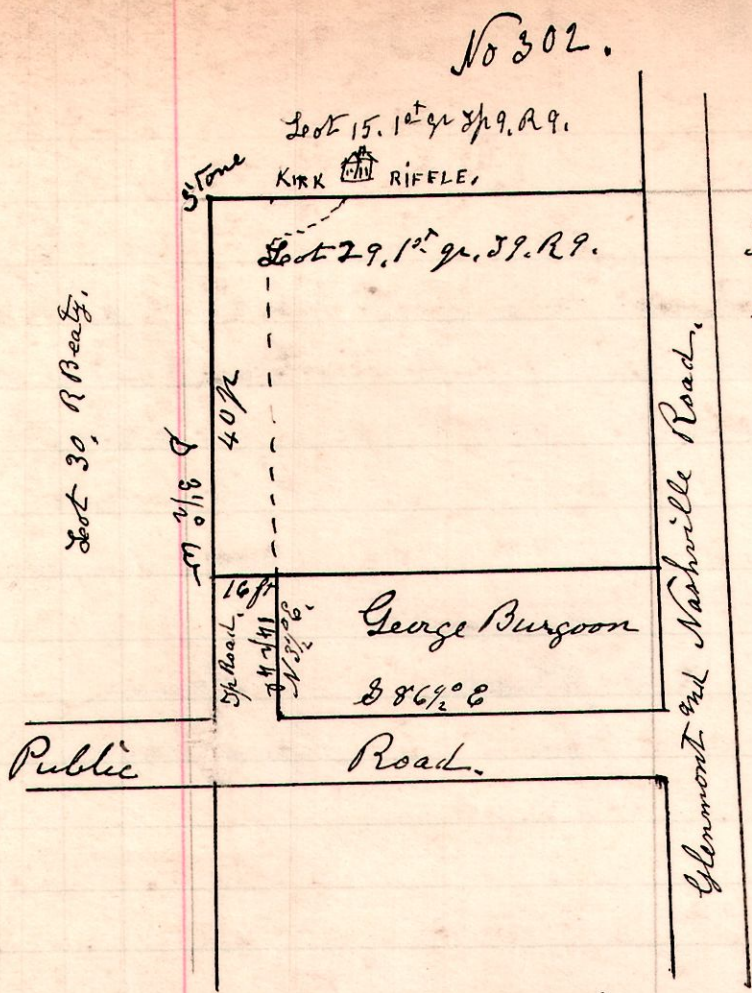 No 302.
Lot 15. 1st qr Tp 9. R 9.
Stone
KIRK RIFFLE.
Lot 29. 1st qr. T9. R9.
Lot 30, R Beaty.
40 p
S 3½° W
16 ft
Tp Road.
N 3½° E.
George Burgoon
S 86½° E
Public Road.
Glenmont and Nashville Road.